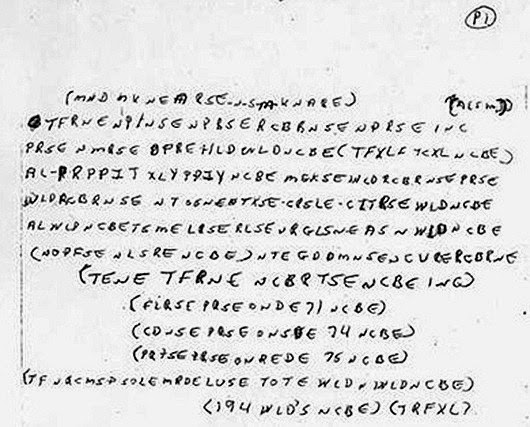 P1
(MND MKNEARSE-N-S-M-KNARE) (ACSM)
TFRNENPINSENPBSERCBBNSENPRSEINC
PRSENMRSEOPREHLDWLDNCBE(TFXLFTCXLNCBE)
AL-PRPPIT XLYPPIYNCBE MGKSEWLDRCBRNSEPRSE
WLDRCBRNSE NTOSNENTXSE-CRSLE-CITRSEWLDNCBE
ALWLDNCBETSMELRSERLSENRGLSNEASNWLDNCBE
(NOPFSENLSRENCBE) NTEGDDMNSENCURERCBRNE
(TENE TFRNE NCBRTSENCBEING)
(FLRSE PRSEONDE71NCBE)
(CDNSE PRSEONSDE 74NCBE)
(PRTSE PRSEONREDE 75NCBE)
(TFNRCMSPSOLEMRDELUSE TOTE WLDNWLDNCBE)
(194 WLD'S NCBE)(TRFXL)